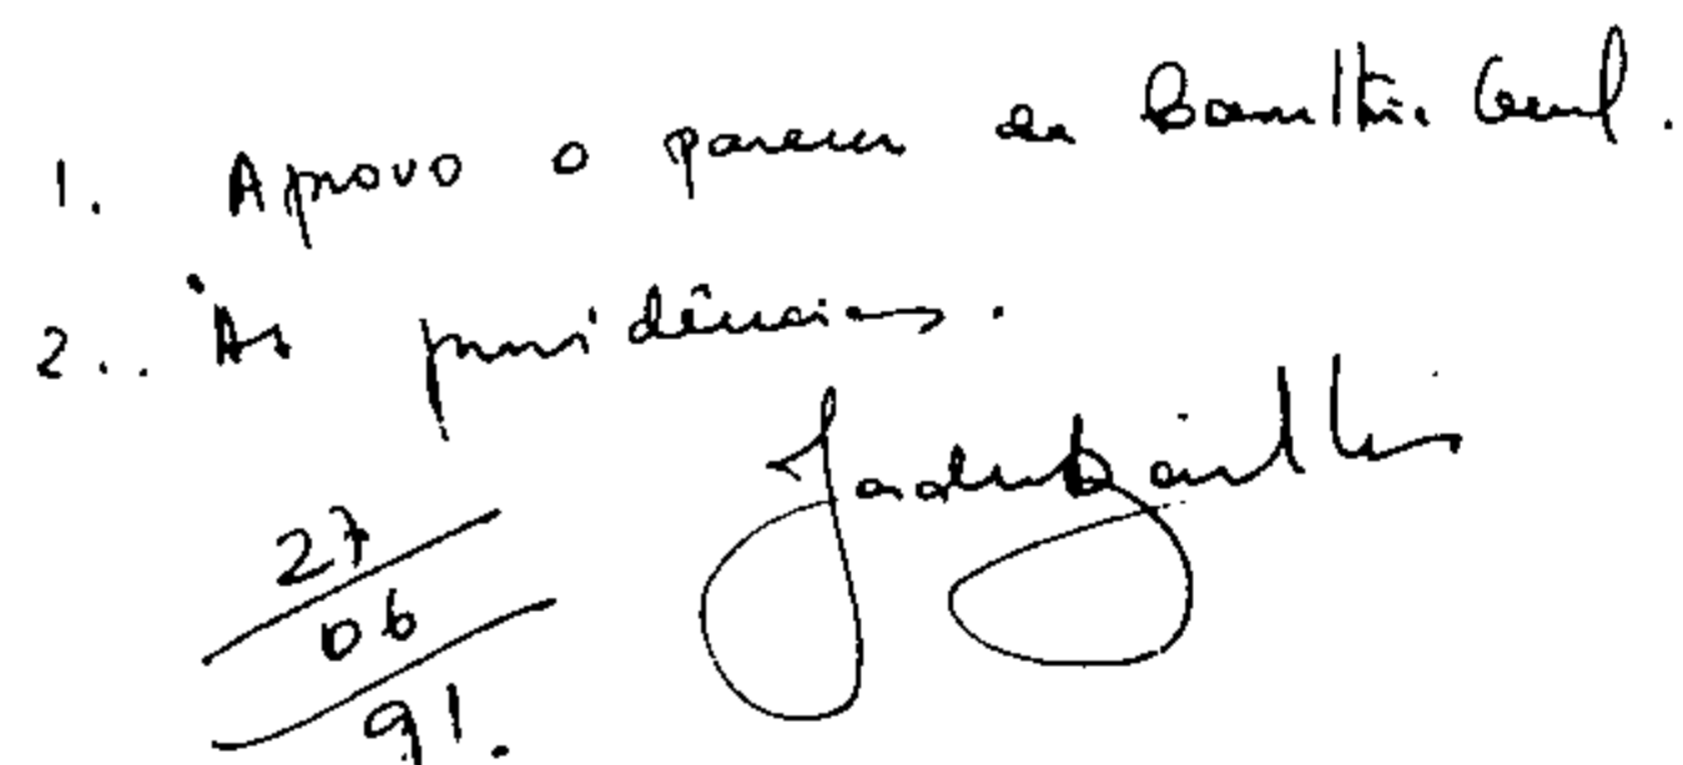 1. Aprovo o parecer da Consultoria Geral.
2. Às providências.
27
06
91.